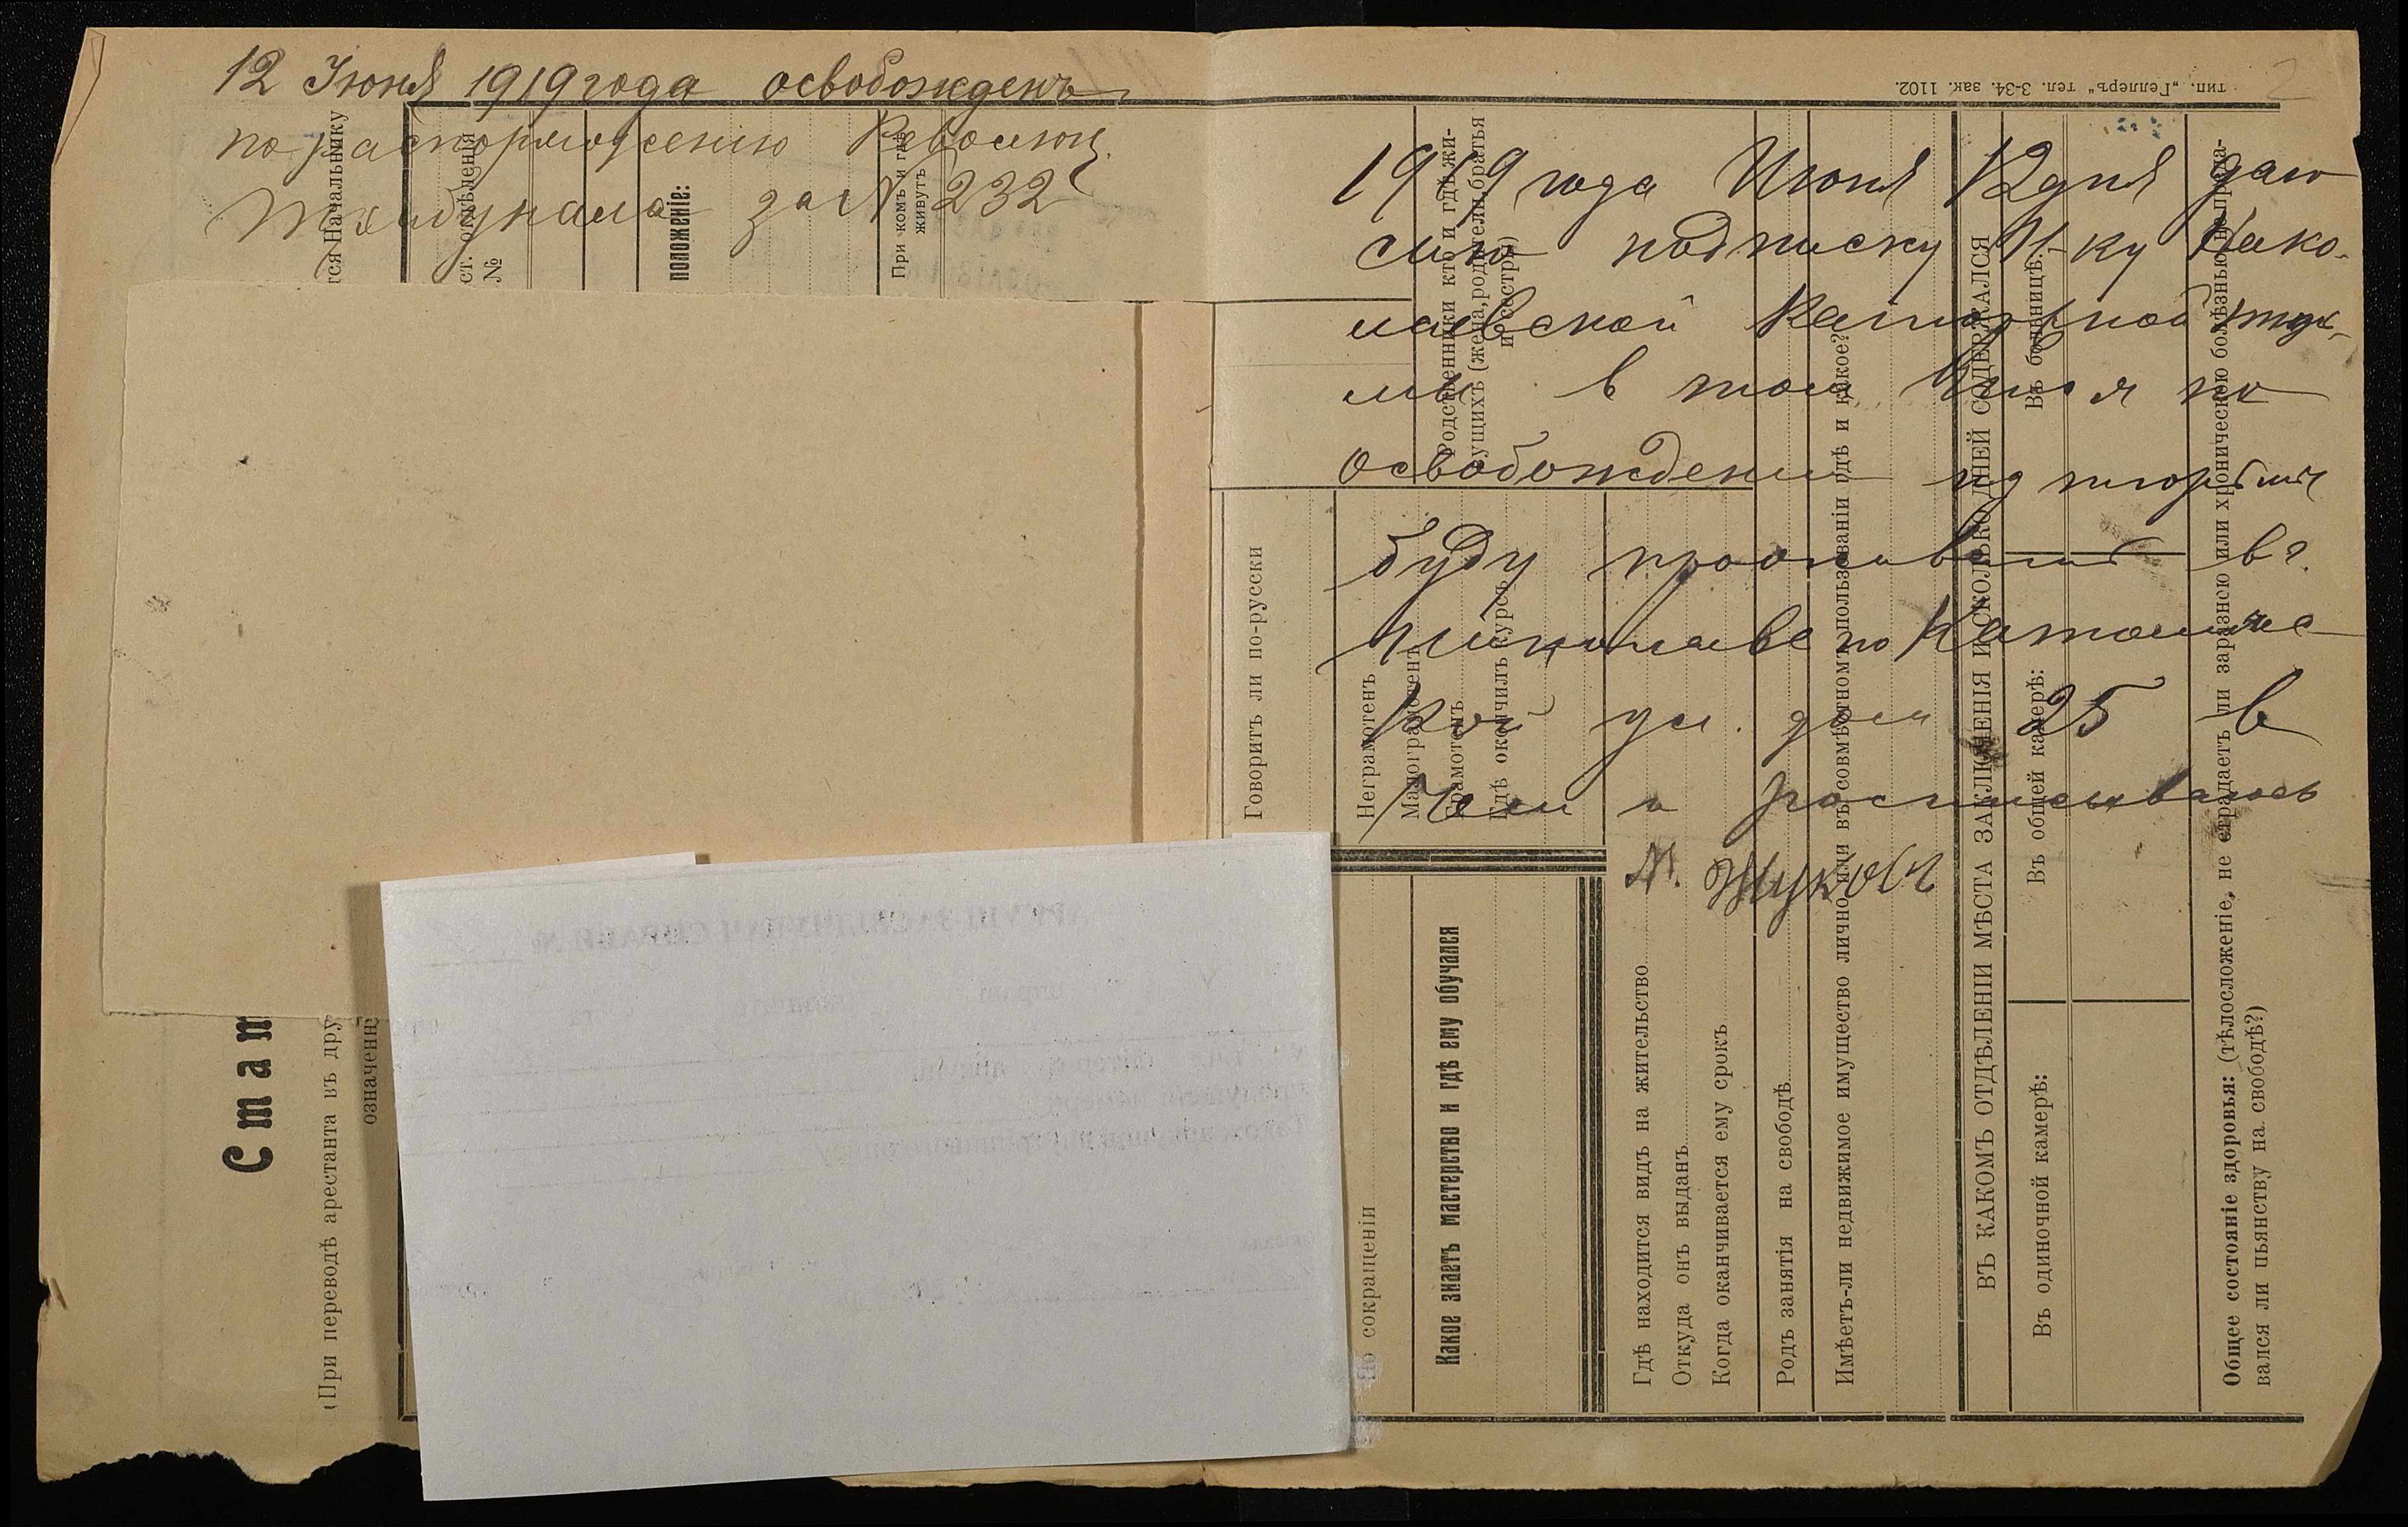 12 Июня 1919 года освобожденъ
по распоряжению Революц.
Трибунала за № 232
1919 года Июня 12 дня даю
сию подписку Н-ку Нико-
лаевской Каторжной тюр-
мы в том что я по
освобождении из тюрьмы
буду проживать в г.
Николаеве по
кой ул. дом 25 в
чем и росписываюсь
Жуковъ
тип. „Геллеръ“ тел. 3-34. зак. 1102.
2
тся Начальнику
ст. отдѣленія
№
положеніе:
При комъ и гдѣ
живутъ
Стат
(При переводѣ арестанта въ дру
означени
Родственники кто и гдѣ жи-
вущихъ (жена, родители, братья
и сестры)
Говоритъ ли по-русски
Неграмотенъ
Малограмотенъ
Грамотенъ
Гдѣ окончилъ курсъ
сокращеніи
Какое знаетъ мастерство и гдѣ ему обучался
Гдѣ находится видъ на жительство
Откуда онъ выданъ
Когда оканчивается ему срокъ
Родъ занятія на свободѣ
Имѣетъ-ли недвижимое имущество лично или въ совмѣстномъ пользованіи гдѣ и какое?
ВЪ КАКОМЪ ОТДѢЛЕНІИ МѢСТА ЗАКЛЮЧЕНІЯ И СКОЛЬКО ДНЕЙ СОДЕРЖАЛСЯ
Въ одиночной камерѣ:
Въ общей камерѣ:
Въ больницѣ:
Общее состояніе здоровья: (тѣлосложеніе, не страдаетъ ли заразною или хроническою болѣзнью, не преда-
вался ли пьянству на свободѣ?)